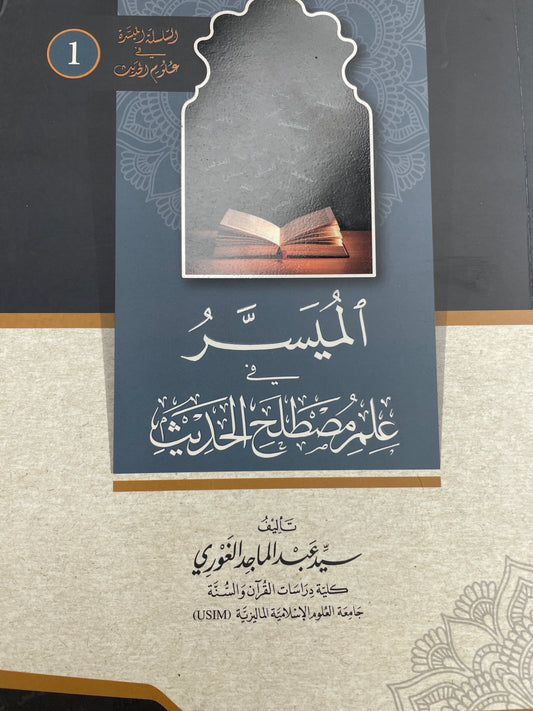 السلسلة الميسرة
في
علوم الحديث
1
المُيَسَّرُ
في
عِلمِ مُصْطَلَحِ الحَدِيثِ
تَأليفُ
سيِّد عَبْد الماجِد الغَوْرِي
كلية دِرَاسَات القُرآن والسُّنَّة
جَامِعَة العُلوم الإسْلاميَّة الماليزيَّة (USIM)